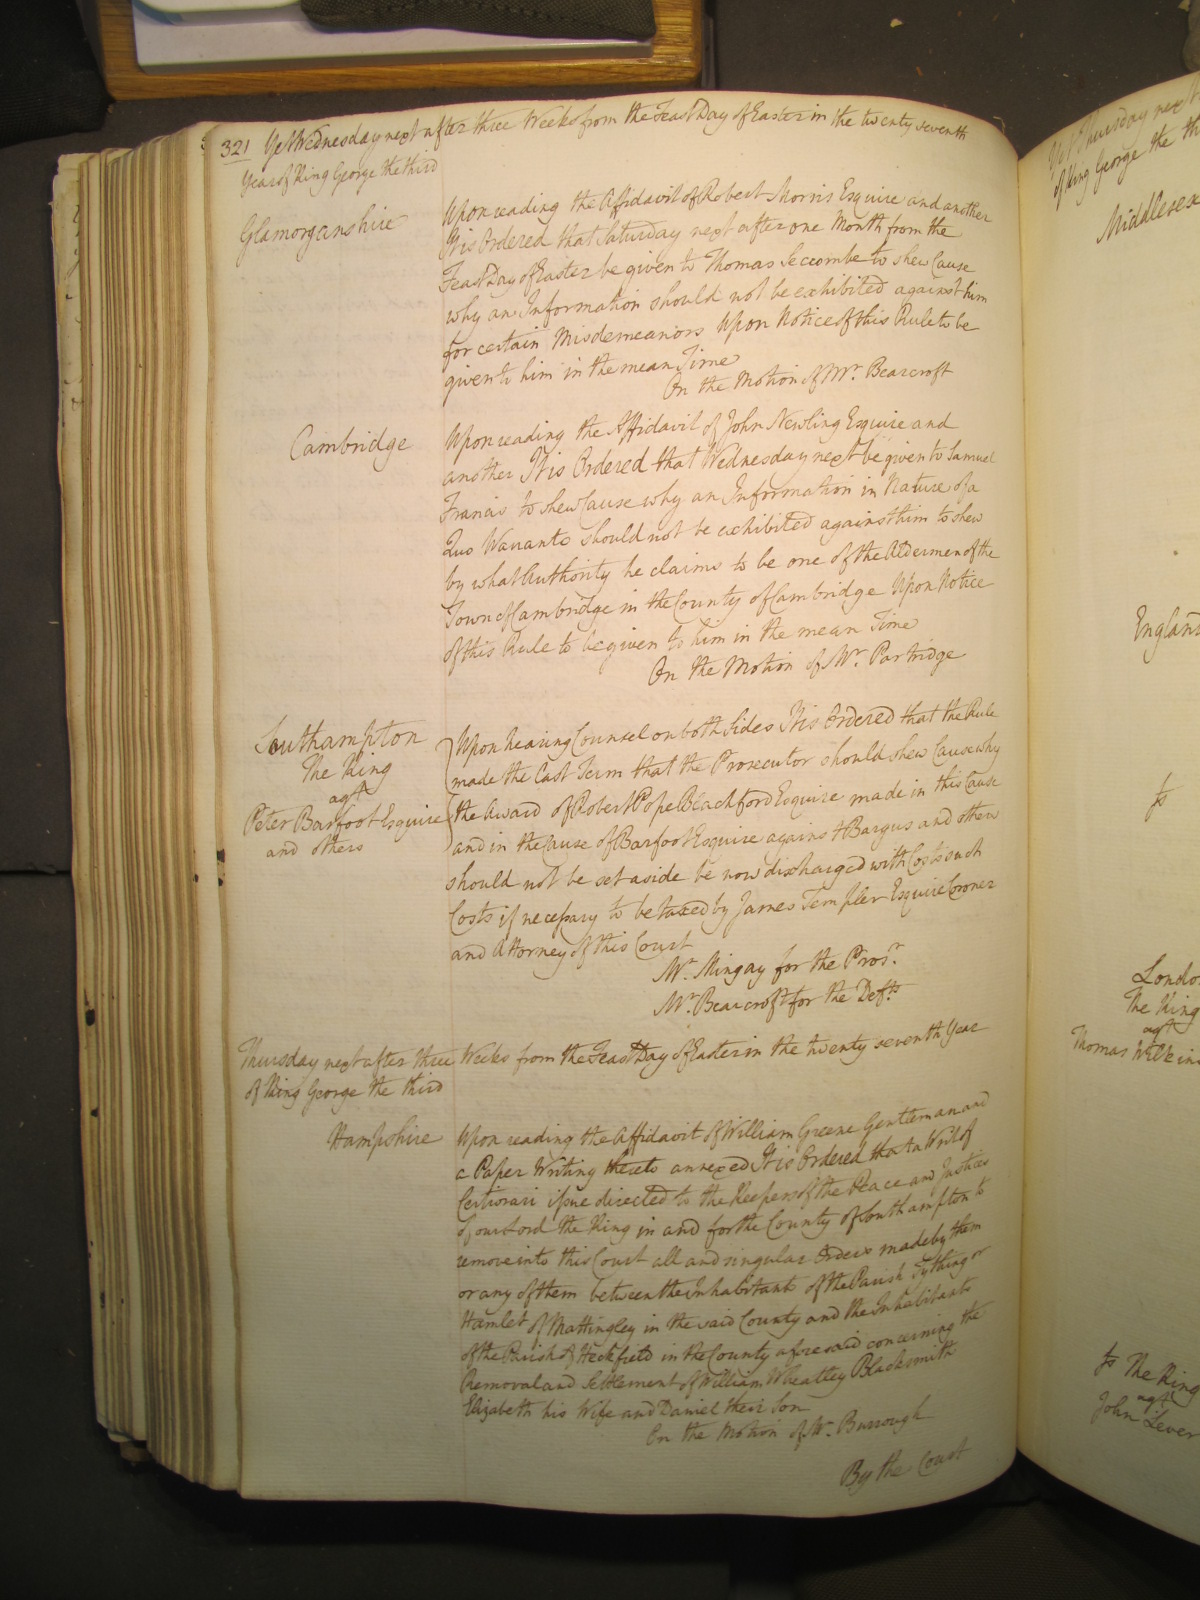 321 Yet Wednesday next after three Weeks from the Feast Day of Easter in the twenty seventh
Year of King George the third
Glamorganshire
Upon reading the Affidavit of Robert Morris Esquire and another
It is Ordered that Saturday next after one Month from the
Feast Day of Easter be given to Thomas Seccombe to shew Cause
why an Information should not be exhibited against him
for certain Misdemeanors Upon Notice of this Rule to be
given to him in the mean Time
On the Motion of Mr. Bearcroft
Cambridge
Upon reading the Affidavit of John Newling Esquire and
another It is Ordered that Wednesday next be given to Samuel
Francis to shew Cause why an Information in Nature of a
Quo Warranto should not be exhibited against him to shew
by what Authority he claims to be one of the Aldermen of the
Town of Cambridge in the County of Cambridge Upon Notice
of this Rule to be given to him in the mean Time
On the Motion of Mr. Partridge
Southampton
The King
agt
Peter Barfoot Esquire
and others
Upon hearing Counsel on both Sides It is Ordered that the Rule
made the last Term that the Prosecutor should shew Cause why
the Award of Robert Pope Blachford Esquire made in this Cause
and in the Cause of Barfoot Esquire against Bargus and others
should not be set aside be now discharged with Costs such
Costs if necessary to be taxed by James Templer Esquire Coroner
and Attorney of this Court
Mr. Mingay for the Prosr.
Mr. Bearcroft for the Defts
Thursday next after three Weeks from the Feast Day of Easter in the twenty seventh Year
of King George the third
Hampshire
Upon reading the Affidavit of William Greene Gentleman and
a Paper Writing thereto annexed It is Ordered that a Writ of
Certiorari issue directed to the Keepers of the Peace and Justices
of our Lord the King in and for the County of Southampton to
remove into this Court all and singular Orders made by them
or any of them between the Inhabitants of the Parish Tything or
Hamlet of Mattingley in the said County and the Inhabitants
of the Parish of Heckfield in the County aforesaid concerning the
Removal and Settlement of William Wheatley Blacksmith
Elizabeth his Wife and Daniel their Son
On the Motion of Mr. Burrough
By the Court
Yet Thursday next
of King George the th
Middlesex
England
fs
London
The King
agt
Thomas Wilkins
fs The King
agt
John Lever